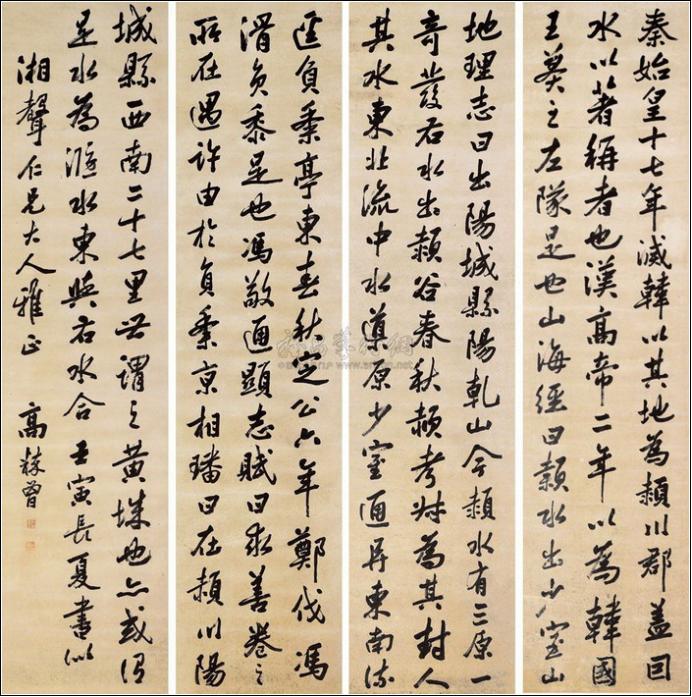 秦始皇十七年滅韓以其地為潁川郡蓋因
水以著稱者也漢高帝二年以為韓國
王莽之左隊是也山海經曰潁水出少室山
地理志曰出陽城縣陽乾山今潁水有三原一
奇發右水出潁谷春秋潁考叔為其封人
其水東北流中水導原少室通阜東南流
逕負黍亭東春秋定公六年鄭伐馮
滑負黍是也馮敬通顯志賦曰求善卷之
所在遇許由於負黍京相璠曰在潁川陽
城縣西南二十七里世謂之黃城也亦或謂
是水為㶏水東與右水合壬寅長夏書似
湘聲仁兄大人雅正 高曾